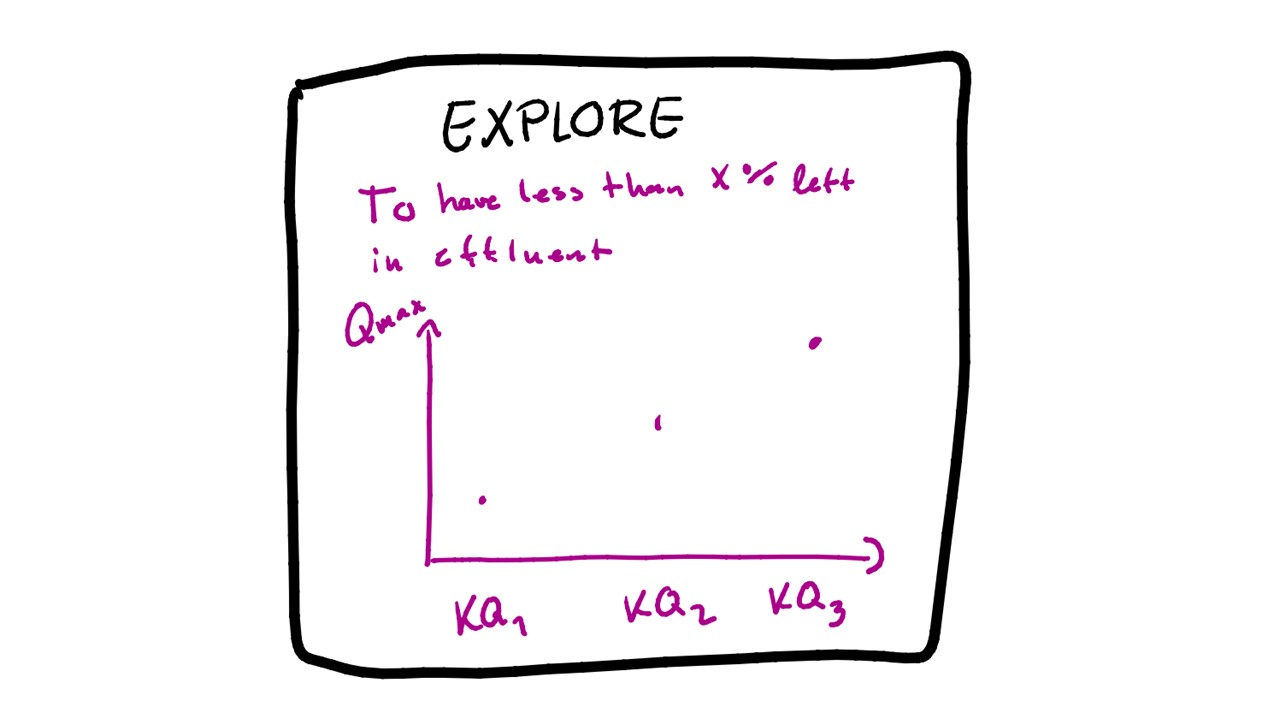 EXPLORE
To have less than X % left
in effluent
Qmax
KQ1 KQ2 KQ3